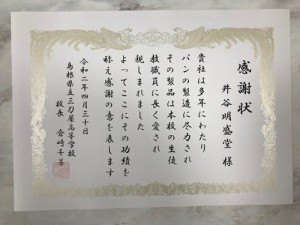 感謝状
井谷明盛堂 様
貴社は多年にわたり
パンの製造に尽力され
その製品は本校の生徒
教職員に長く愛され
親しまれました
よってここにその功績を
称え感謝の意を表します
令和二年四月三十日
島根県立三刀屋高等学校
校長 倉崎千草